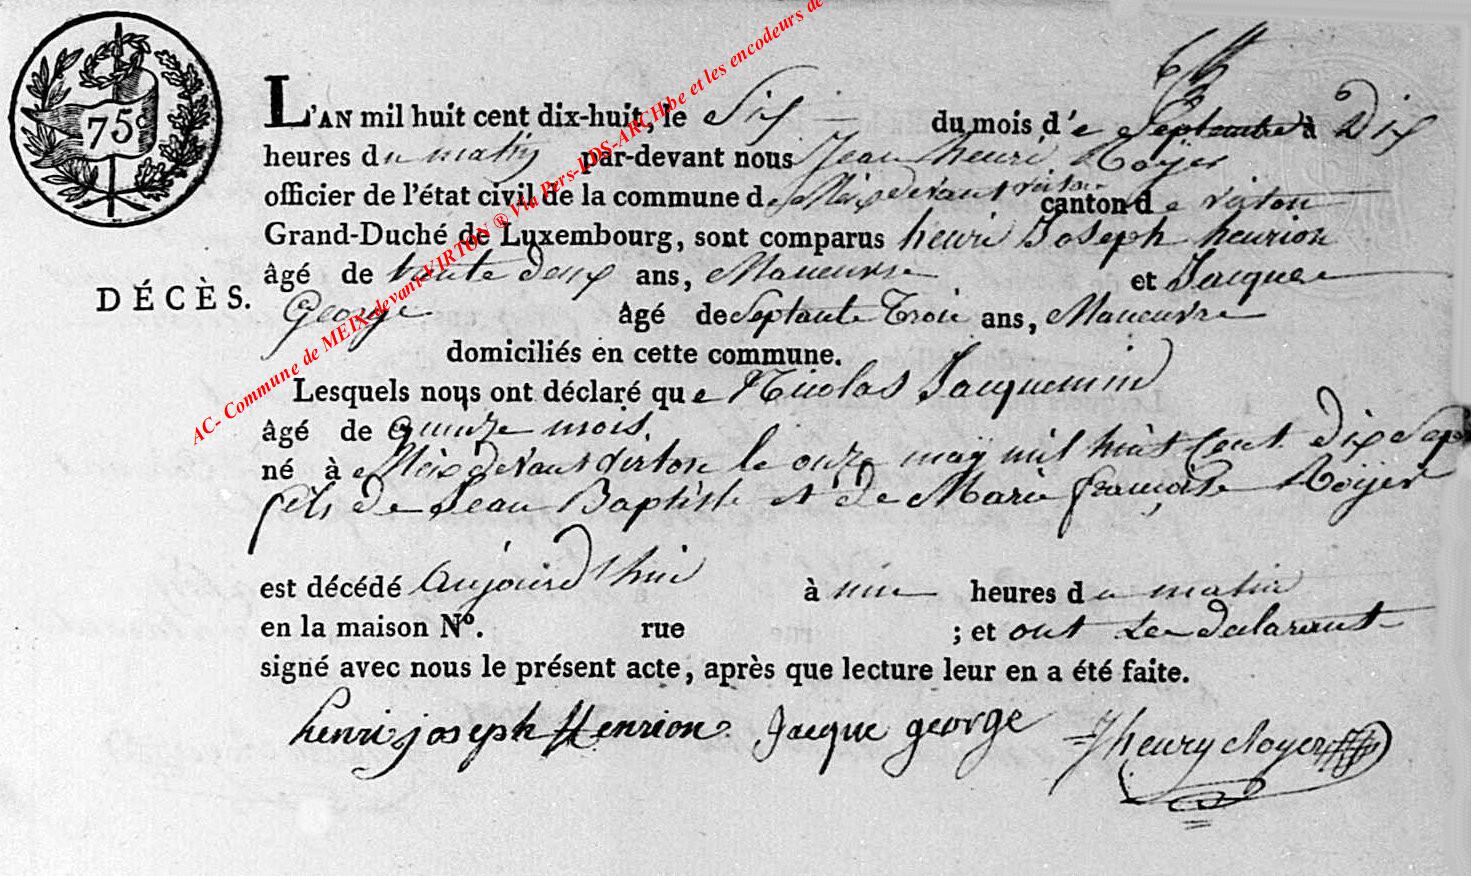 75c
L'AN mil huit cent dix-huit, le Six du mois d'e Septembre à Dix
heures du matin par-devant nous Jean henri Roÿer
officier de l'état civil de la commune de Meix devant virton canton de virton
Grand-Duché de Luxembourg, sont comparus henri Joseph henrion
âgé de trente deux ans, Maneuvre et Jacque
DÉCÈS.
George âgé de Septante Trois ans, Maneuvre
domiciliés en cette commune.
Lesquels nous ont déclaré que Nicolas Jacquemin
âgé de quinze mois.
né à Meix devant virton le onze maÿ mil huit Cent dix Sept
fils de Jean Baptiste et de Marie françoise Roÿer
est décédé aujourd'hui à une heures du matin
en la maison N°. rue ; et ont Les declarant
signé avec nous le présent acte, après que lecture leur en a été faite.
henri joseph Henrion Jacque george Jhenry Royer
AC- Commune de MEIX devant VIRTON ® Via Pers-LDS-ARCH.be et les encodeurs de